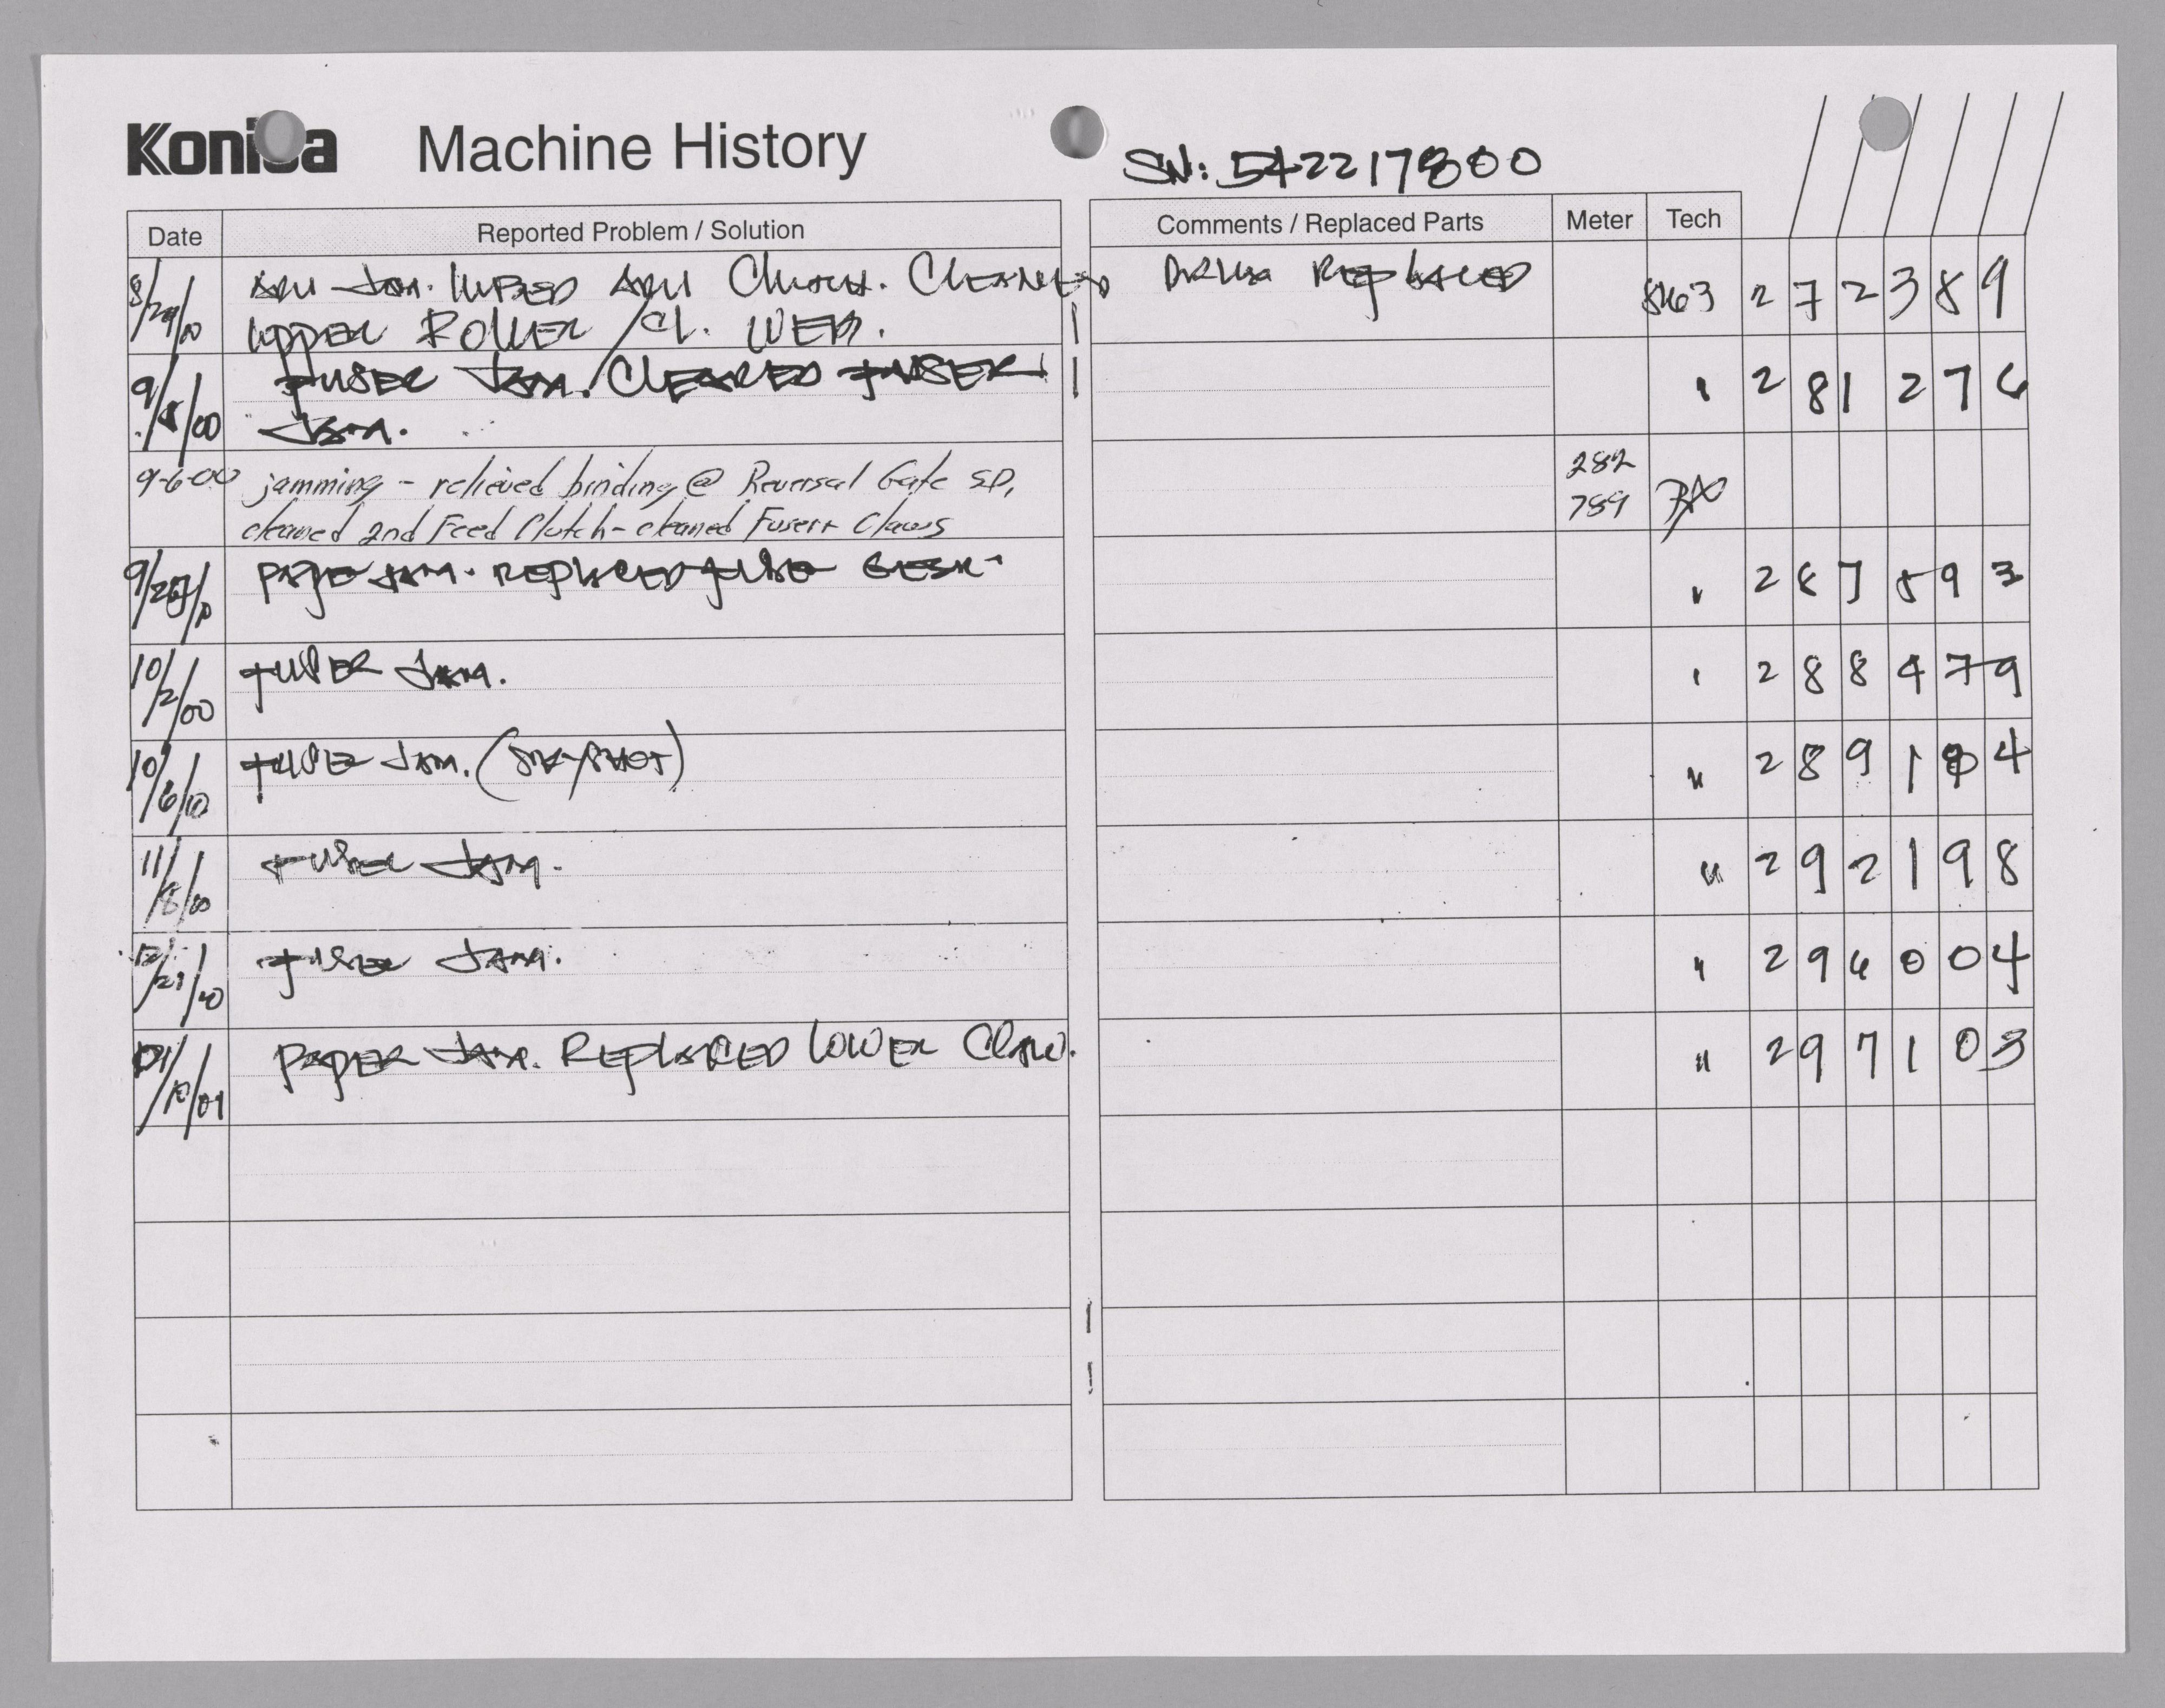 Konica Machine History
SN: 542217800
Date Reported Problem / Solution Comments / Replaced Parts Meter Tech
8/29/00 JAM. LUBED CLUTCH. CLEANED DRUM REPLACED 8163 2 7 2 3 8 9
UPPER ROLLER / CL. WEB.
9/5/00 FUSER JAM. CLEARED FUSER " 2 8 1 2 7 6
JAM.
9-6-00 jamming - relieved binding @ Reversal Gate SD, 282
cleaned 2nd Feed Clutch - cleaned Fuser Claws 789
PAPER JAM. REPLACED FUSE GEAR " 2 8 7 8 9 3
10/2/00 FUSER JAM. " 2 8 8 4 7 9
10/6/00 FUSER JAM. (SNAPSHOT) " 2 8 9 1 4
11/8/00 FUSER JAM. " 2 9 2 1 9 8
12/21/00 FUSER JAM. " 2 9 6 0 0 4
01/10/01 PAPER JAM. REPLACED LOWER CLAW. " 2 9 7 1 0 3